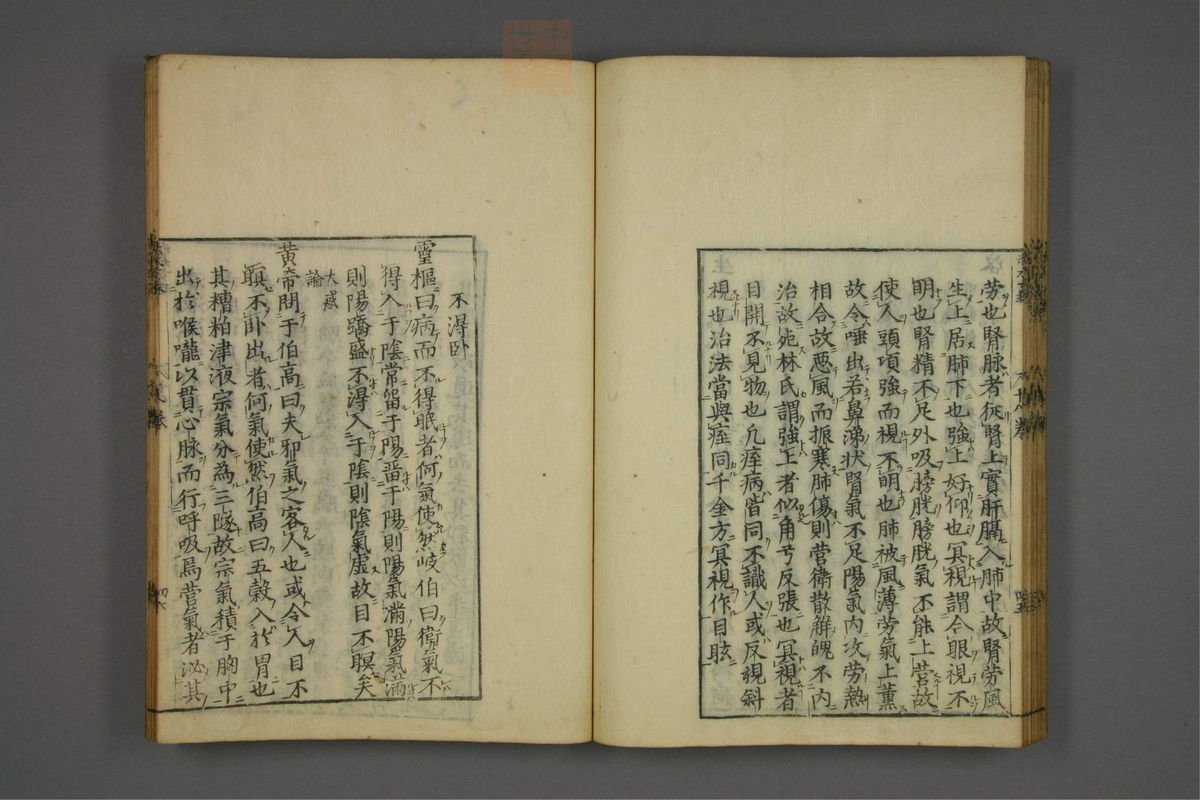 勞也腎脉者從腎上貫肝膈入肺中故腎勞風
生上居肺下也強上好仰也冥視謂令眼視不
明也腎精不足外吸膀胱膀胱氣不能上營故
使人頭項強而視不明也肺被風薄勞氣上薫
故令唾出若鼻涕状腎氣不足陽氣内攻勞熱
相合故悪風而振寒肺傷則营衛散解魄不内
治故死林氏謂強上者似角弓反張也冥視者
目開不見物也凢痓病皆同不識人或反視斜
視也治法當與痓同千金方冥視作目眩
不得卧
靈樞曰病而不得眠者何氣使然岐伯曰衛氣不
得入于陰常留于陽畱于陽則陽氣滿陽氣滿
則陽蹻盛不得入于陰則陰氣虚故目不瞑矣
大惑
論
黄帝問于伯高曰夫邪氣之客人也或令人目不
瞑不卧出者何氣使然伯高曰五穀入於胃也
其糟粕津液宗氣分為三隧故宗氣積于胸中
出於喉嚨以貫心脉而行呼吸焉营氣者泌其